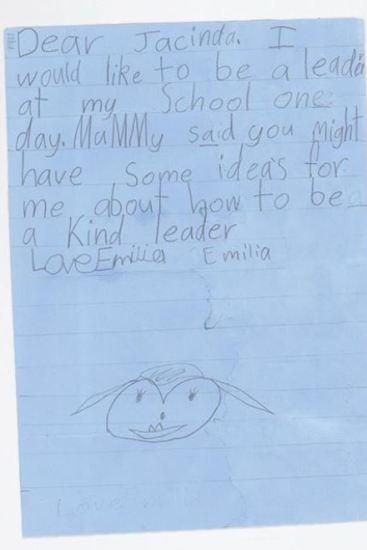 Dear Jacinda. I
would like to be a leader
at my School one
day. MaMMy said you might
have Some ideas for
me about how to be
a Kind leader
Love Emilia Emilia
Love